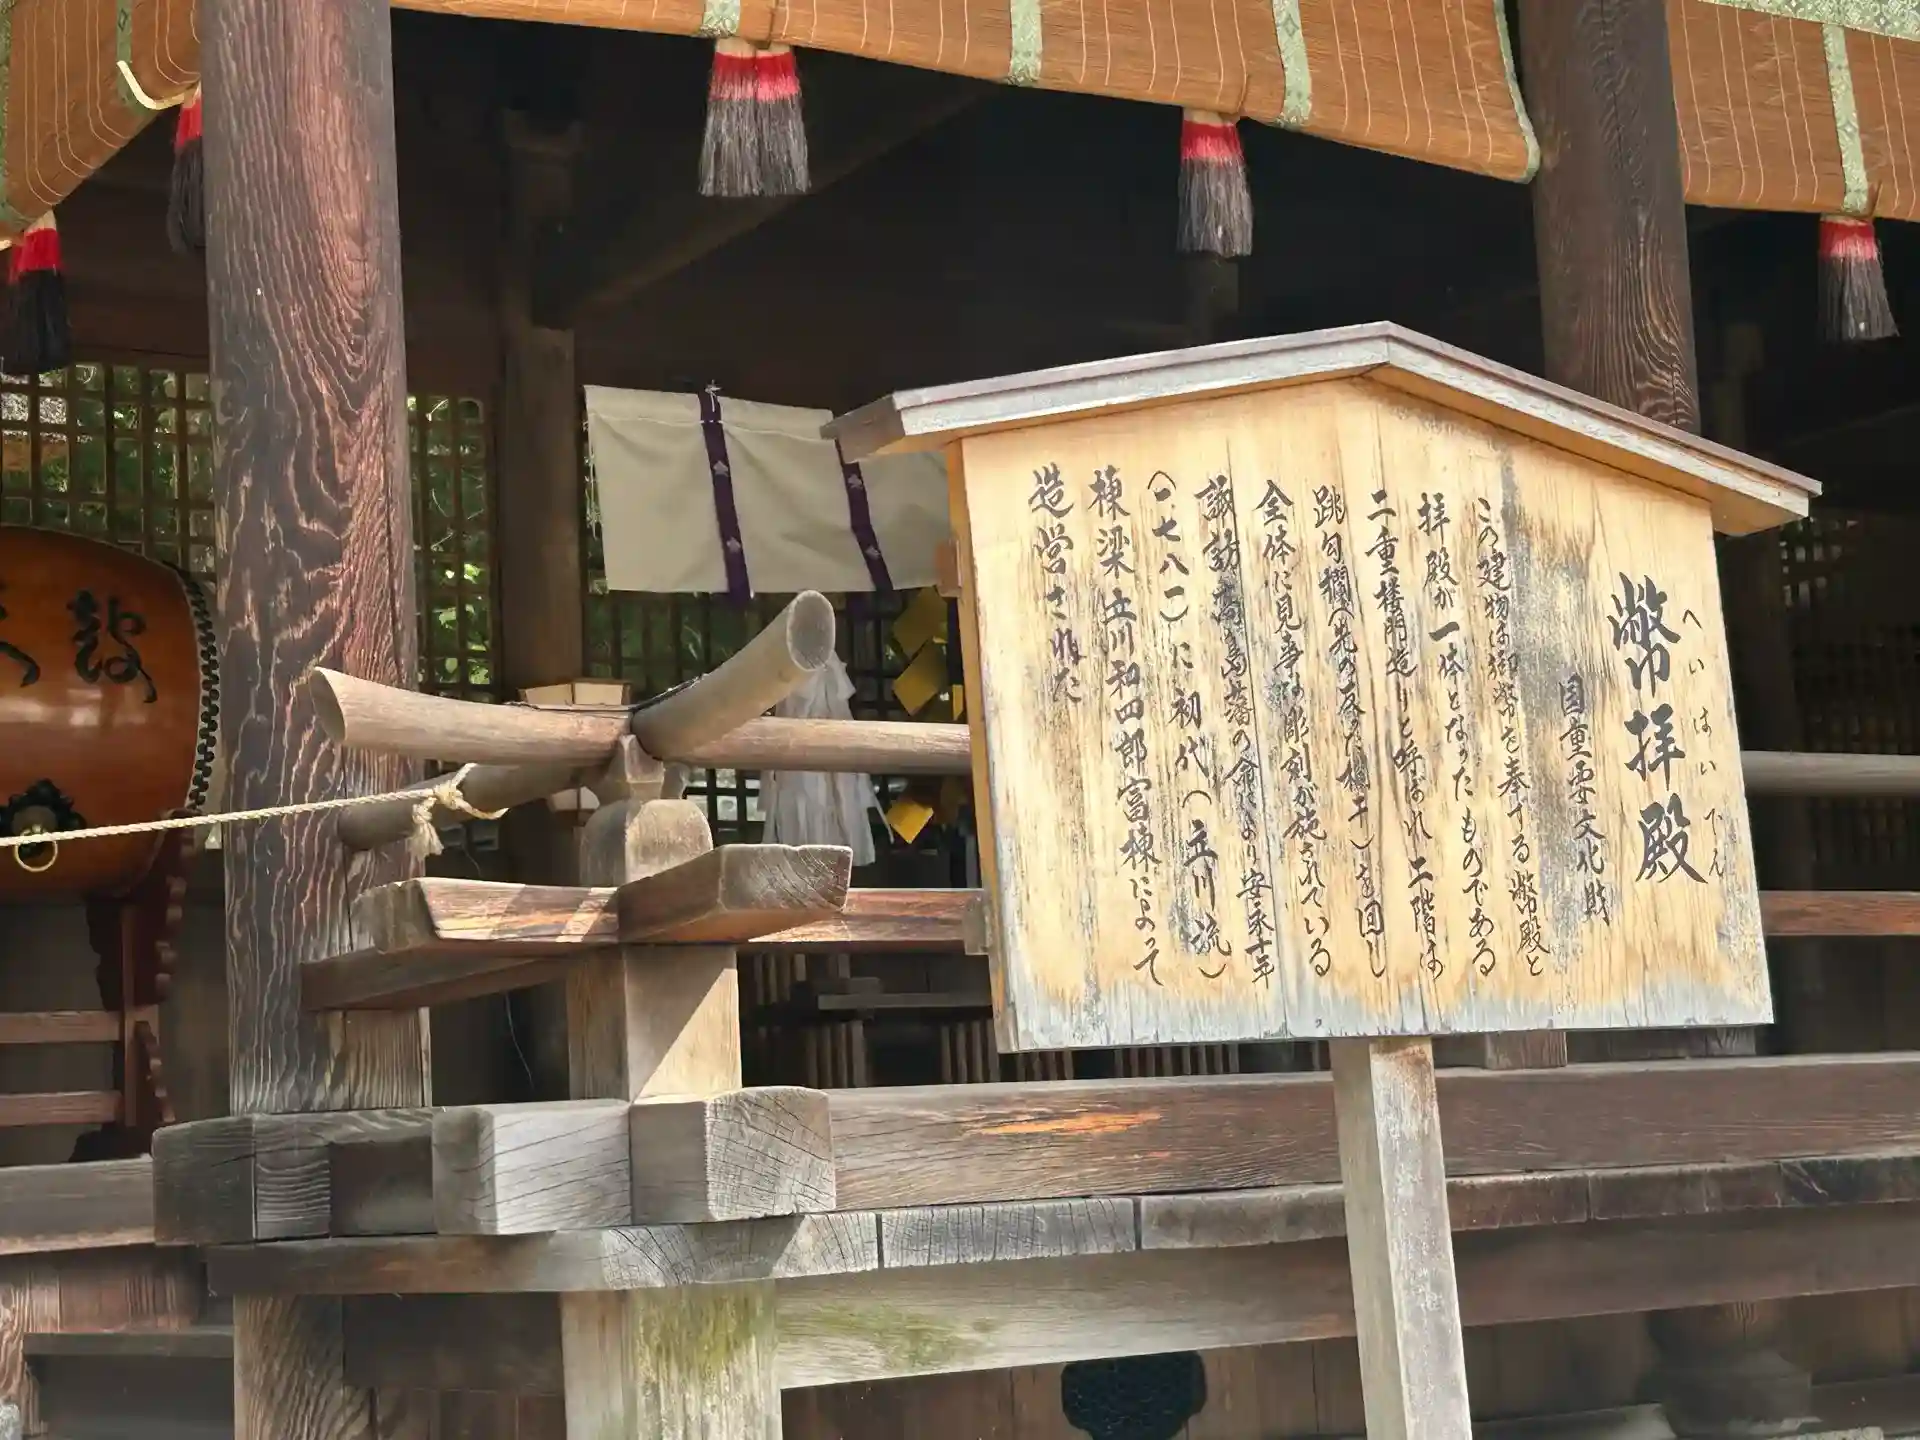 へいはいでん
幣拝殿
国重要文化財
この建物は御幣帛を奉する幣殿と
拝殿が一体となったものである
二重楼門造りと呼ばれ二階は
跳勾欄(先の反った欄干)を回し
全体に見事な彫刻が施されている
諏訪高島藩の命により安永十年
(一七八一)に初代(立川流)
棟梁立川和四郎富棟によって
造営された